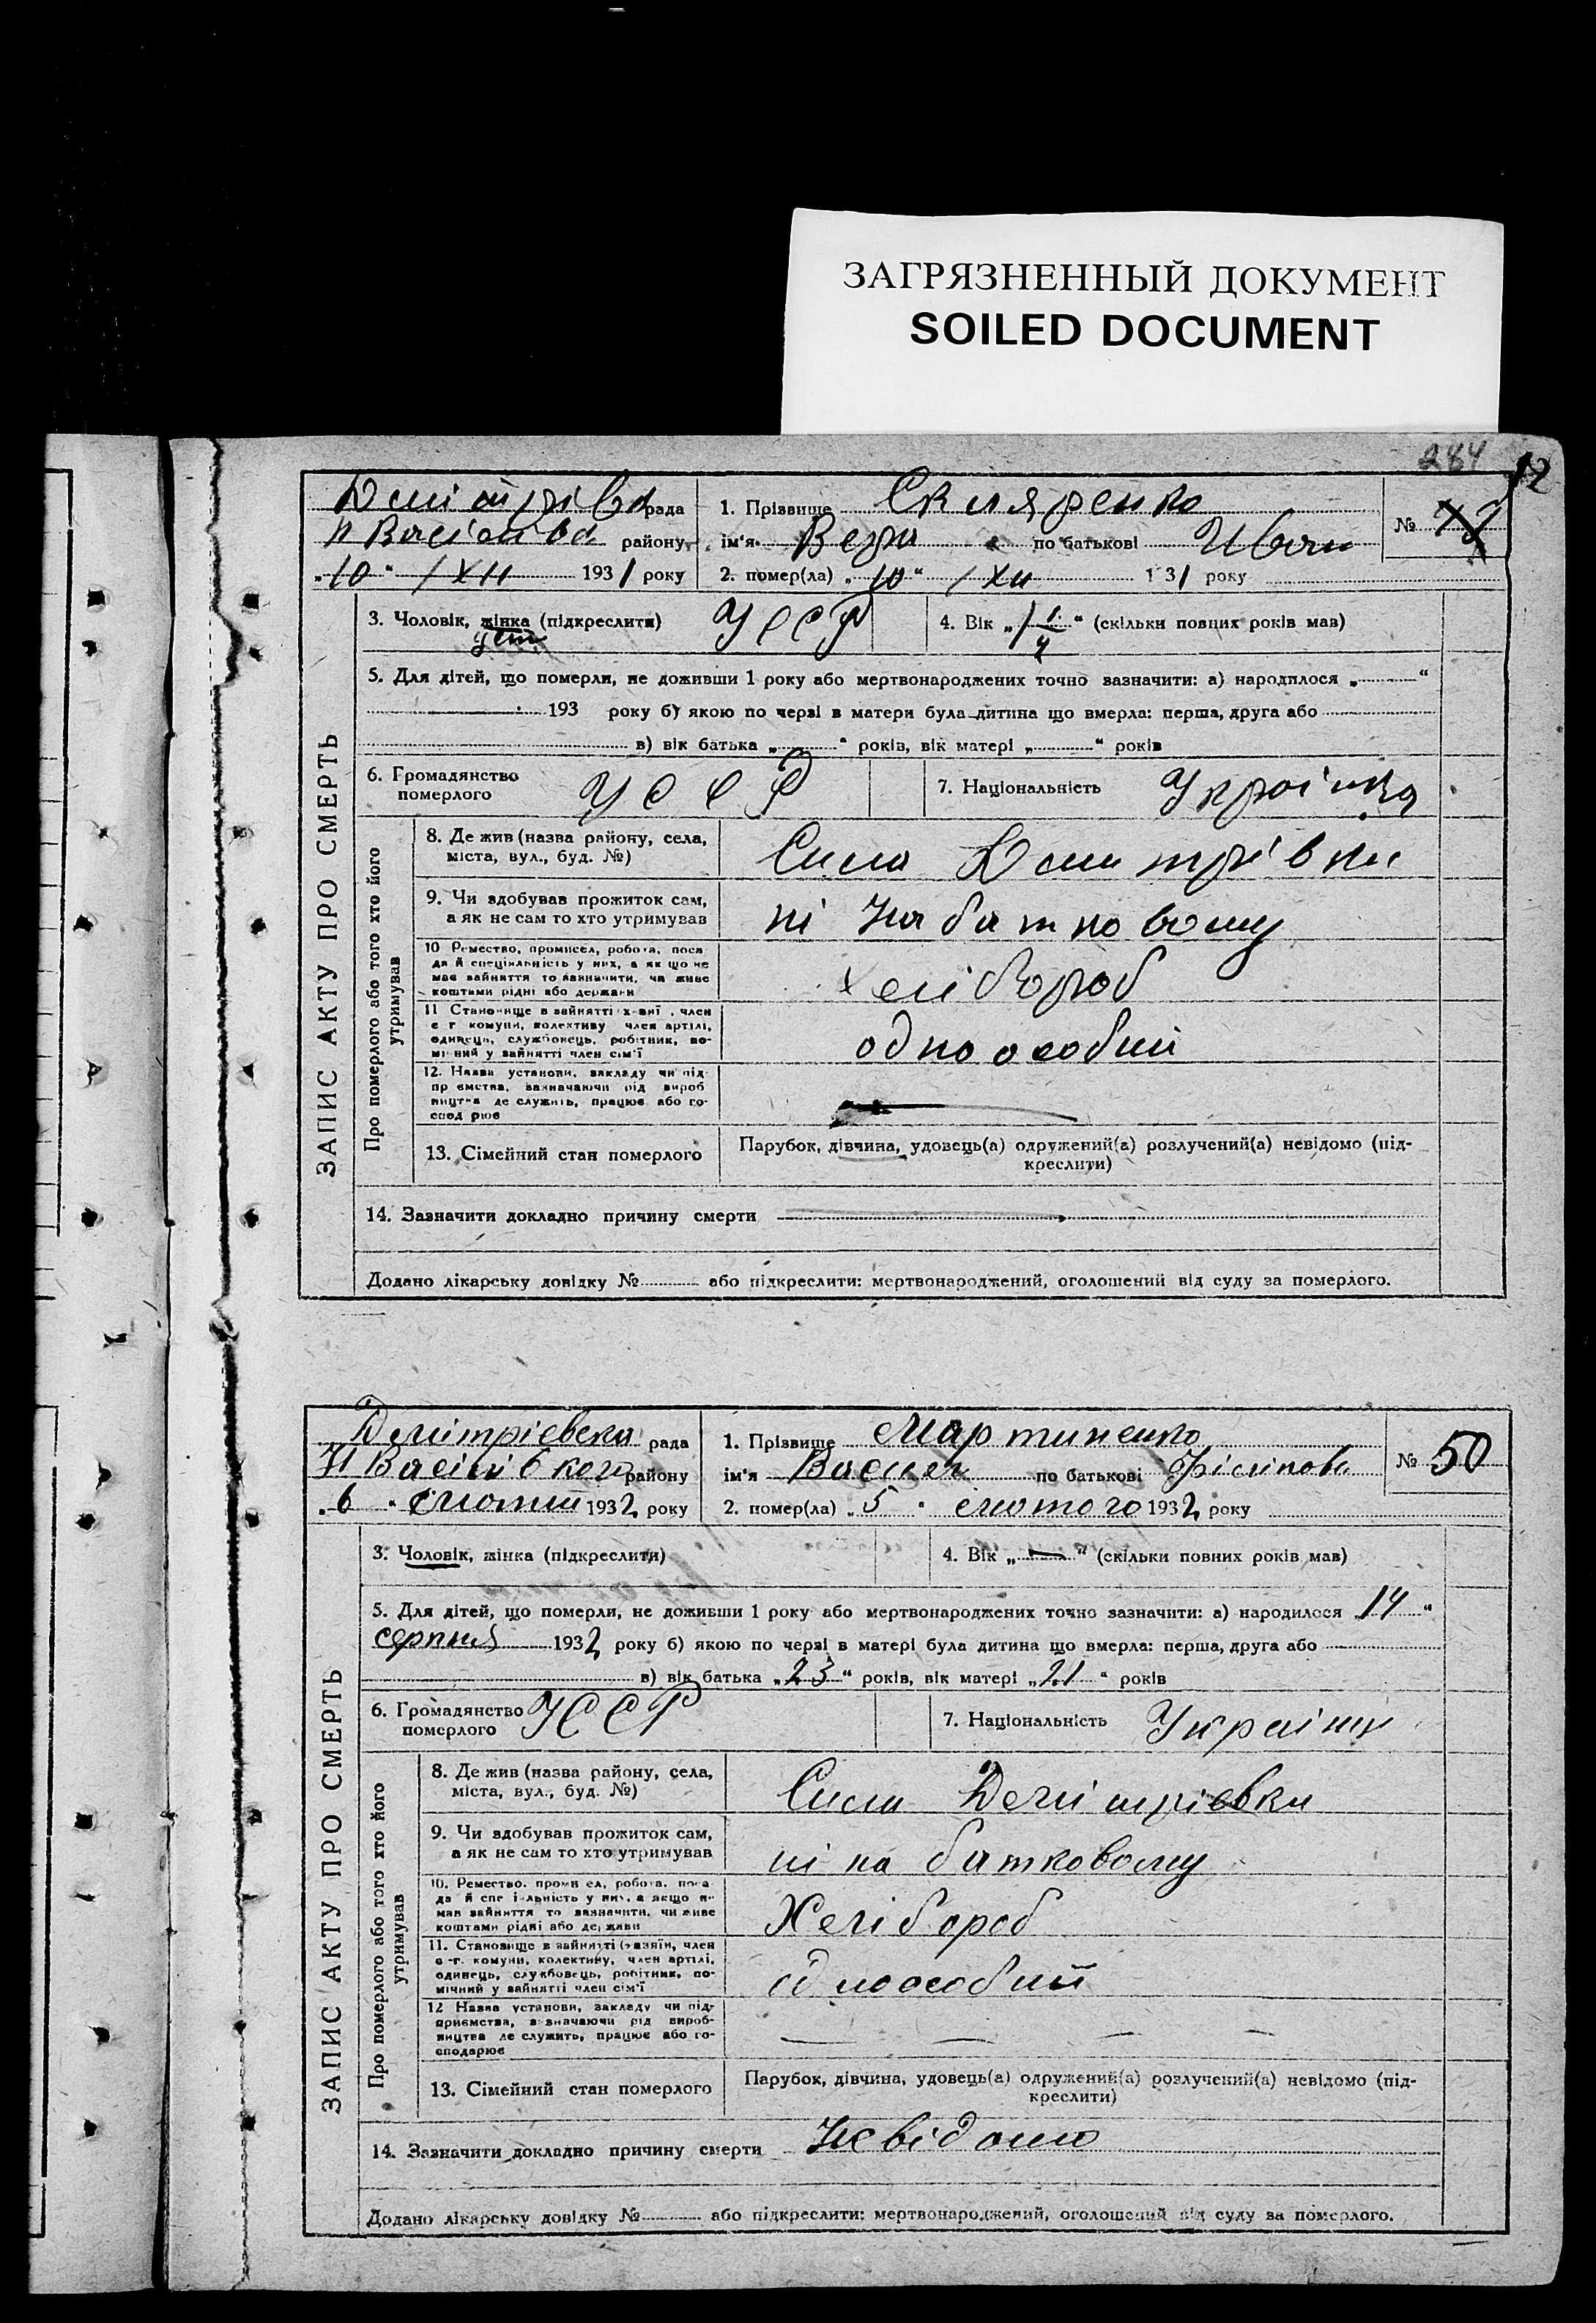 ЗАГРЯЗНЕННЫЙ ДОКУМЕНТ
SOILED DOCUMENT
284 12
ЗАПИС АКТУ ПРО СМЕРТЬ
рада
району
"10" / XII 1931 року
1. Прізвище Скляренко
ім'я Вера по батькові Иван
2. помер(ла) "10" / XII 1 31 року
№
3. Чоловік, жінка (підкреслити) УССР
4. Вік "1 1/4" (скільки повних років мав)
5. Для дітей, що померли, не доживши 1 року або мертвонароджених точно зазначити: а) народилося " "
193 року б) якою по черзі в матери була дитина що вмерла: перша, друга або
в) вік батька " " років, вік матері " " років
6. Громадянство померлого УССР
7. Національність Украінка
Про померлого або того хто його утримував
8. Де жив (назва району, села, міста, вул., буд. №) Дмитрівка
9. Чи здобував прожиток сам, а як не сам то хто утримував ні на батковому
10 Ремество, промисел, робота, поса
да й спеціяльність у них, а як що не
має зайняття то зазначити, чи живе
коштами рідні або держави
хлібороб
11 Становище в зайнятті
с г комуни, колективу член артілі,
одинець, службовець, робітник, по-
мічний у зайнятті член сім'ї
одноособий
12. Назва установи, закладу чи під-
пр ємства, зазначаючи рід вироб
ництва де служить, працює або го-
спод рює
13. Сімейний стан померлого Парубок, дівчина, удовець(а) одружений(а) розлучений(а) невідомо (під-
креслити)
14. Зазначити докладно причину смерти
Додано лікарську довідку № або підкреслити: мертвонароджений, оголошений від суду за померлого.
ЗАПИС АКТУ ПРО СМЕРТЬ
Дмітріевска рада
району
"6" 1932 року
1. Прізвище Мартиненко
ім'я по батькові Філіпов
2. помер(ла) "5" лютого 1932 року
№ 50
3. Чоловік, жінка (підкреслити)
4. Вік "—" (скільки повних років мав)
5. Для дітей, що померли, не доживши 1 року або мертвонароджених точно зазначити: а) народилося "14"
серпня 1932 року б) якою по черзі в матері була дитина що вмерла: перша, друга або
в) вік батька "23" років, вік матері "21" років
6. Громадянство померлого УССР
7. Національність
Про померлого або того хто його утримував
8. Де жив (назва району, села, міста, вул., буд. №) Дмітріевка
9. Чи здобував прожиток сам, а як не сам то хто утримував ні на батковому
10. Ремество, промисел, робота, поса
да й спеціяльність у них, а якщо не
має зайняття то зазначити, чи живе
коштами рідні або держави
Хлібороб
11. Становище в зайнятті (хазяїн, член
с-г. комуни, колективу, член артілі,
одинець, службовець, робітник, по-
мічний у зайнятті член сім'ї
одноособий
12 Назва установи, закладу чи під-
приємства, зазначаючи рід вироб-
ництва де служить, працює або го-
сподарює
13. Сімейний стан померлого Парубок, дівчина, удовець(а) одружений(а) розлучений(а) невідомо (під-
креслити)
14. Зазначити докладно причину смерти Невідомо
Додано лікарську довідку № або підкреслити: мертвонароджений, оголошений від суду за померлого.